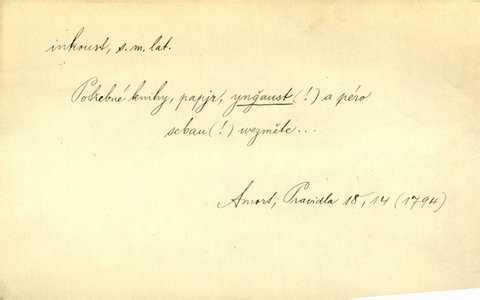 inkoust, s.m. lat.
Potřebné knihy, papjr, ynğaust (!) a péro
sebau (!) wezměte...
Pravidla 18, 14 (1794)